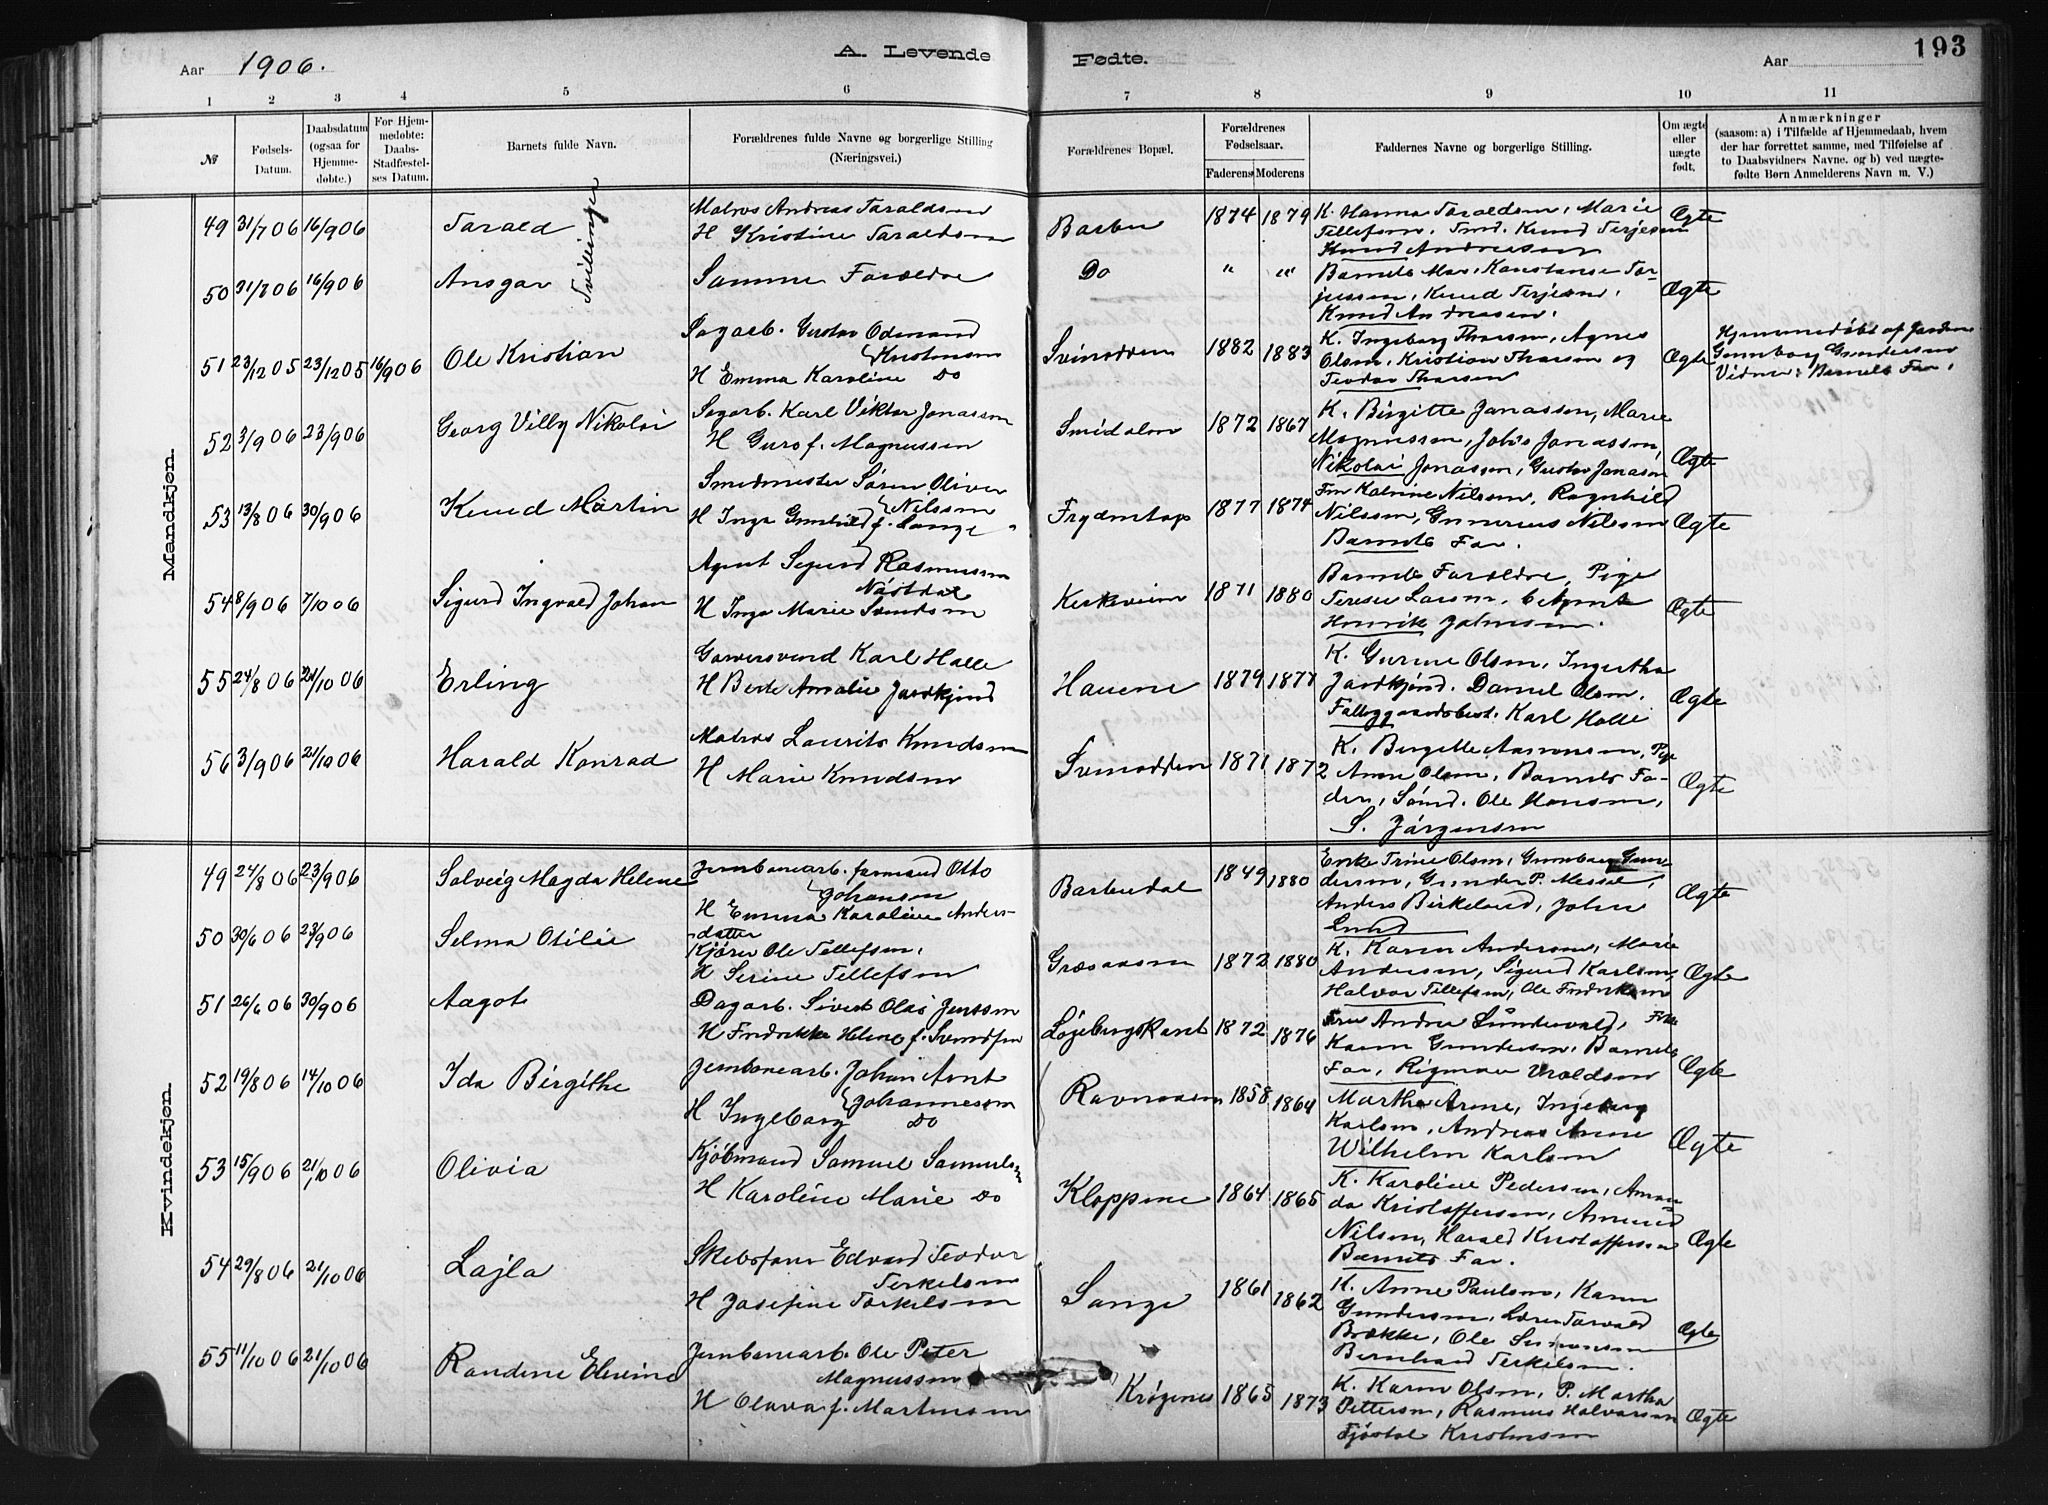 Aar 1906. A. Levende Fødte. Aar 193
1 2 3 4 5 6 7 8 9 10 11
№
Fødsels-Datum.
Daabsdatum (ogsaa for Hjemmedøbte.)
For Hjemmedøbte: Daabs-Stadfæstelses Datum.
Barnets fulde Navn.
Forældrenes fulde Navne og borgerlige Stilling (Næringsvei.)
Forældrenes Bopæl.
Forældrenes Fødselsaar.
Faderens Moderens
Faddernes Navne og borgerlige Stilling.
Om ægte eller uægte født.
Anmærkninger
(saasom: a) i Tilfælde af Hjemmedaab, hvem der har forrettet samme, med Tilføielse af to Daabsvidners Navne, og b) ved uægtefødte Børn Anmelderens Navn m. V.)
Mandkjøn.
49 31/7 06 16/9 06 Tarald Tvillinger
Matros Andreas Taraldsen
H Kristine Taraldsen
Barbu 1874 1879
K. Hanna Taraldsen, Marie
Tellefsen, Knud Terjesen
Knud Andreassen
Ægte
50 31/7 06 16/9 06 Ansgar
Samme Forældre
Do " "
Barnets Mor, Konstanse Ter-
jessen, Knud Terjesen,
Knud Andreassen.
Ægte
51 23/12 05 23/12 05 16/9 06 Ole Kristian
Sagarb. Gustav Odmund
Kristensen
H Emma Karoline Do
Svinodden 1882 1883
K. Ingeborg Thorsen, Agnes
Olsen, Kristian Thorsen og
Teodor Thorsen
Ægte
Hjemmedøbt af Jordm.
Gunnborg Gundersen
Vidne: Barnets Far.
52 3/9 06 23/9 06 Georg Villy Nikolai
Sagarb. Karl Viktor Jonassen
H Guro f. Magnussen
Smidalen 1872 1867
K. Birgitte Jonassen, Marie
Magnussen, Johs Jonassen,
Nikolai Jonassen, Gustav Jonassen
Ægte
53 13/8 06 30/9 06 Knud Martin
Smedmester Søren Oliver
Nilssen
H Inga Gunhild f. Lange
Frydentop 1877 1874
Fru Katrine Nilssen, Ragnhild
Nilssen, Gunerius Nilssen
Barnets Far.
Ægte
54 8/9 06 7/10 06 Sigurd Ingvald Johan
Agent Sigurd Rasmussen
Næstdal
H Inga Marie Svendsen
Kirkeveien 1871 1880
Barnets Forældre, Pige
Terese Larsen, Agent
Henrik Johnsen.
Ægte
55 24/8 06 21/10 06 Erling
Garversvend Karl Halle
H Berte Amalie Jordkjend
Hauene 1879 1877
K. Gurine Olsen, Ingertha
Jordkjend. Daniel Olsen.
Karl Halle
Ægte
56 3/9 06 21/10 06 Harald Konrad
Matros Laurits Knudsen
H Marie Knudsen
Svinodden 1871 1872
K. Birgitte Aasronsen, Pige
Anne Olsen, Barnets Fa-
der, Sømd. Ole Hansen,
S. Jørgensen
Ægte
Kvindekjøn.
49 24/8 06 23/9 06 Solveig Magda Helene
Jernbanearb. formand Otto
Johansen
H Emma Karoline Anders-
datter
Barbudal 1849 1880
Enke Trine Olsen, Gunnborg Gun-
dersen, Gunder P. Messel,
Anders Birkelund, John
Lund
Ægte
50 30/6 06 23/9 06 Selma Otilie
Kjører Ole Tellefsen,
H Serine Tellefsen
Græsaasen 1872 1880
K. Karen Andersen, Marie
Andersen, Sigurd Karlsen,
Halvor Tellefsen, Ole Fredriksen
Ægte
51 26/6 06 30/9 06 Aagot
Dagarb. Sivert Olas Jenssen
H Fredrikke Helene f. Svendsen
Løjebergskaret 1872 1876
Fru Andrea Sundervald, Frk
Karen Gundersen, Barnets
Far, Rigmor Uroldsen
Ægte
52 19/8 06 14/10 06 Ida Birgithe
Jernbanearb. Johan Arnt
Johannessen
H Ingeborg Do
Ravnaasen 1858 1864
Martha Arne, Ingeborg
Karlsen, Andreas Arne
Wilhelm Karlsen
Ægte
53 15/9 06 21/10 06 Olivia
Kjøbmand Samuel Samuelsen
H Karoline Marie Do
Kloppene 1864 1865
K. Karoline Pedersen, Aman-
da Kristoffersen, Amund
Nilsen, Harald Kristoffersen
Barnets Far.
Ægte
54 29/8 06 21/10 06 Lajla
Skibsfører Edvard Teodor
Terkelsen
H Josefine Torkelsen
Songe 1861 1862
K. Anne Paulsen, Karen
Gundersen, Lærer Torvald
Brække, Ole Simonsen
Bernhard Terkelsen.
Ægte
55 11/10 06 21/10 06 Randine Elevine
Jernbanearb. Ole Peter
Magnussen
H Olava f. Martinsen
Krøgenes 1865 1873
K. Karen Olsen, P. Martha
Pettersen, Rasmus Halvorsen
Fjøstøl Kristensen
Ægte